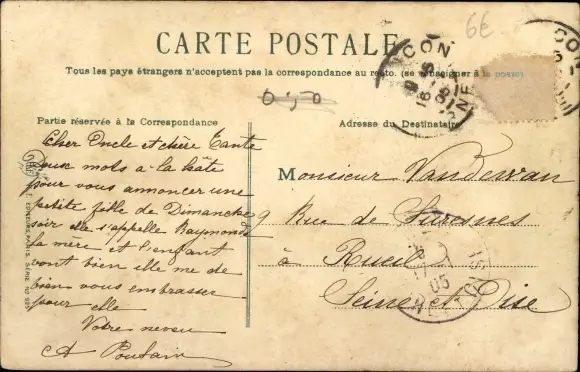 6E
CARTE POSTALE
Tous les pays étrangers n'acceptent pas la correspondance au recto. (se renseigner à la poste)
0,50
Partie réservée à la Correspondance
Adresse du Destinataire
Cher Oncle et chère Tante
Deux mots à la hâte
pour vous annoncer une
petite fille de Dimanche
soir elle s'appelle Raymonde
la mère et l'enfant
vont bien elle me de
bien vous embrasser
pour elle
Votre neveu
A Poulain
Monsieur Vanderwan
9 Rue de Suresnes
à Rueil
Seine et Oise